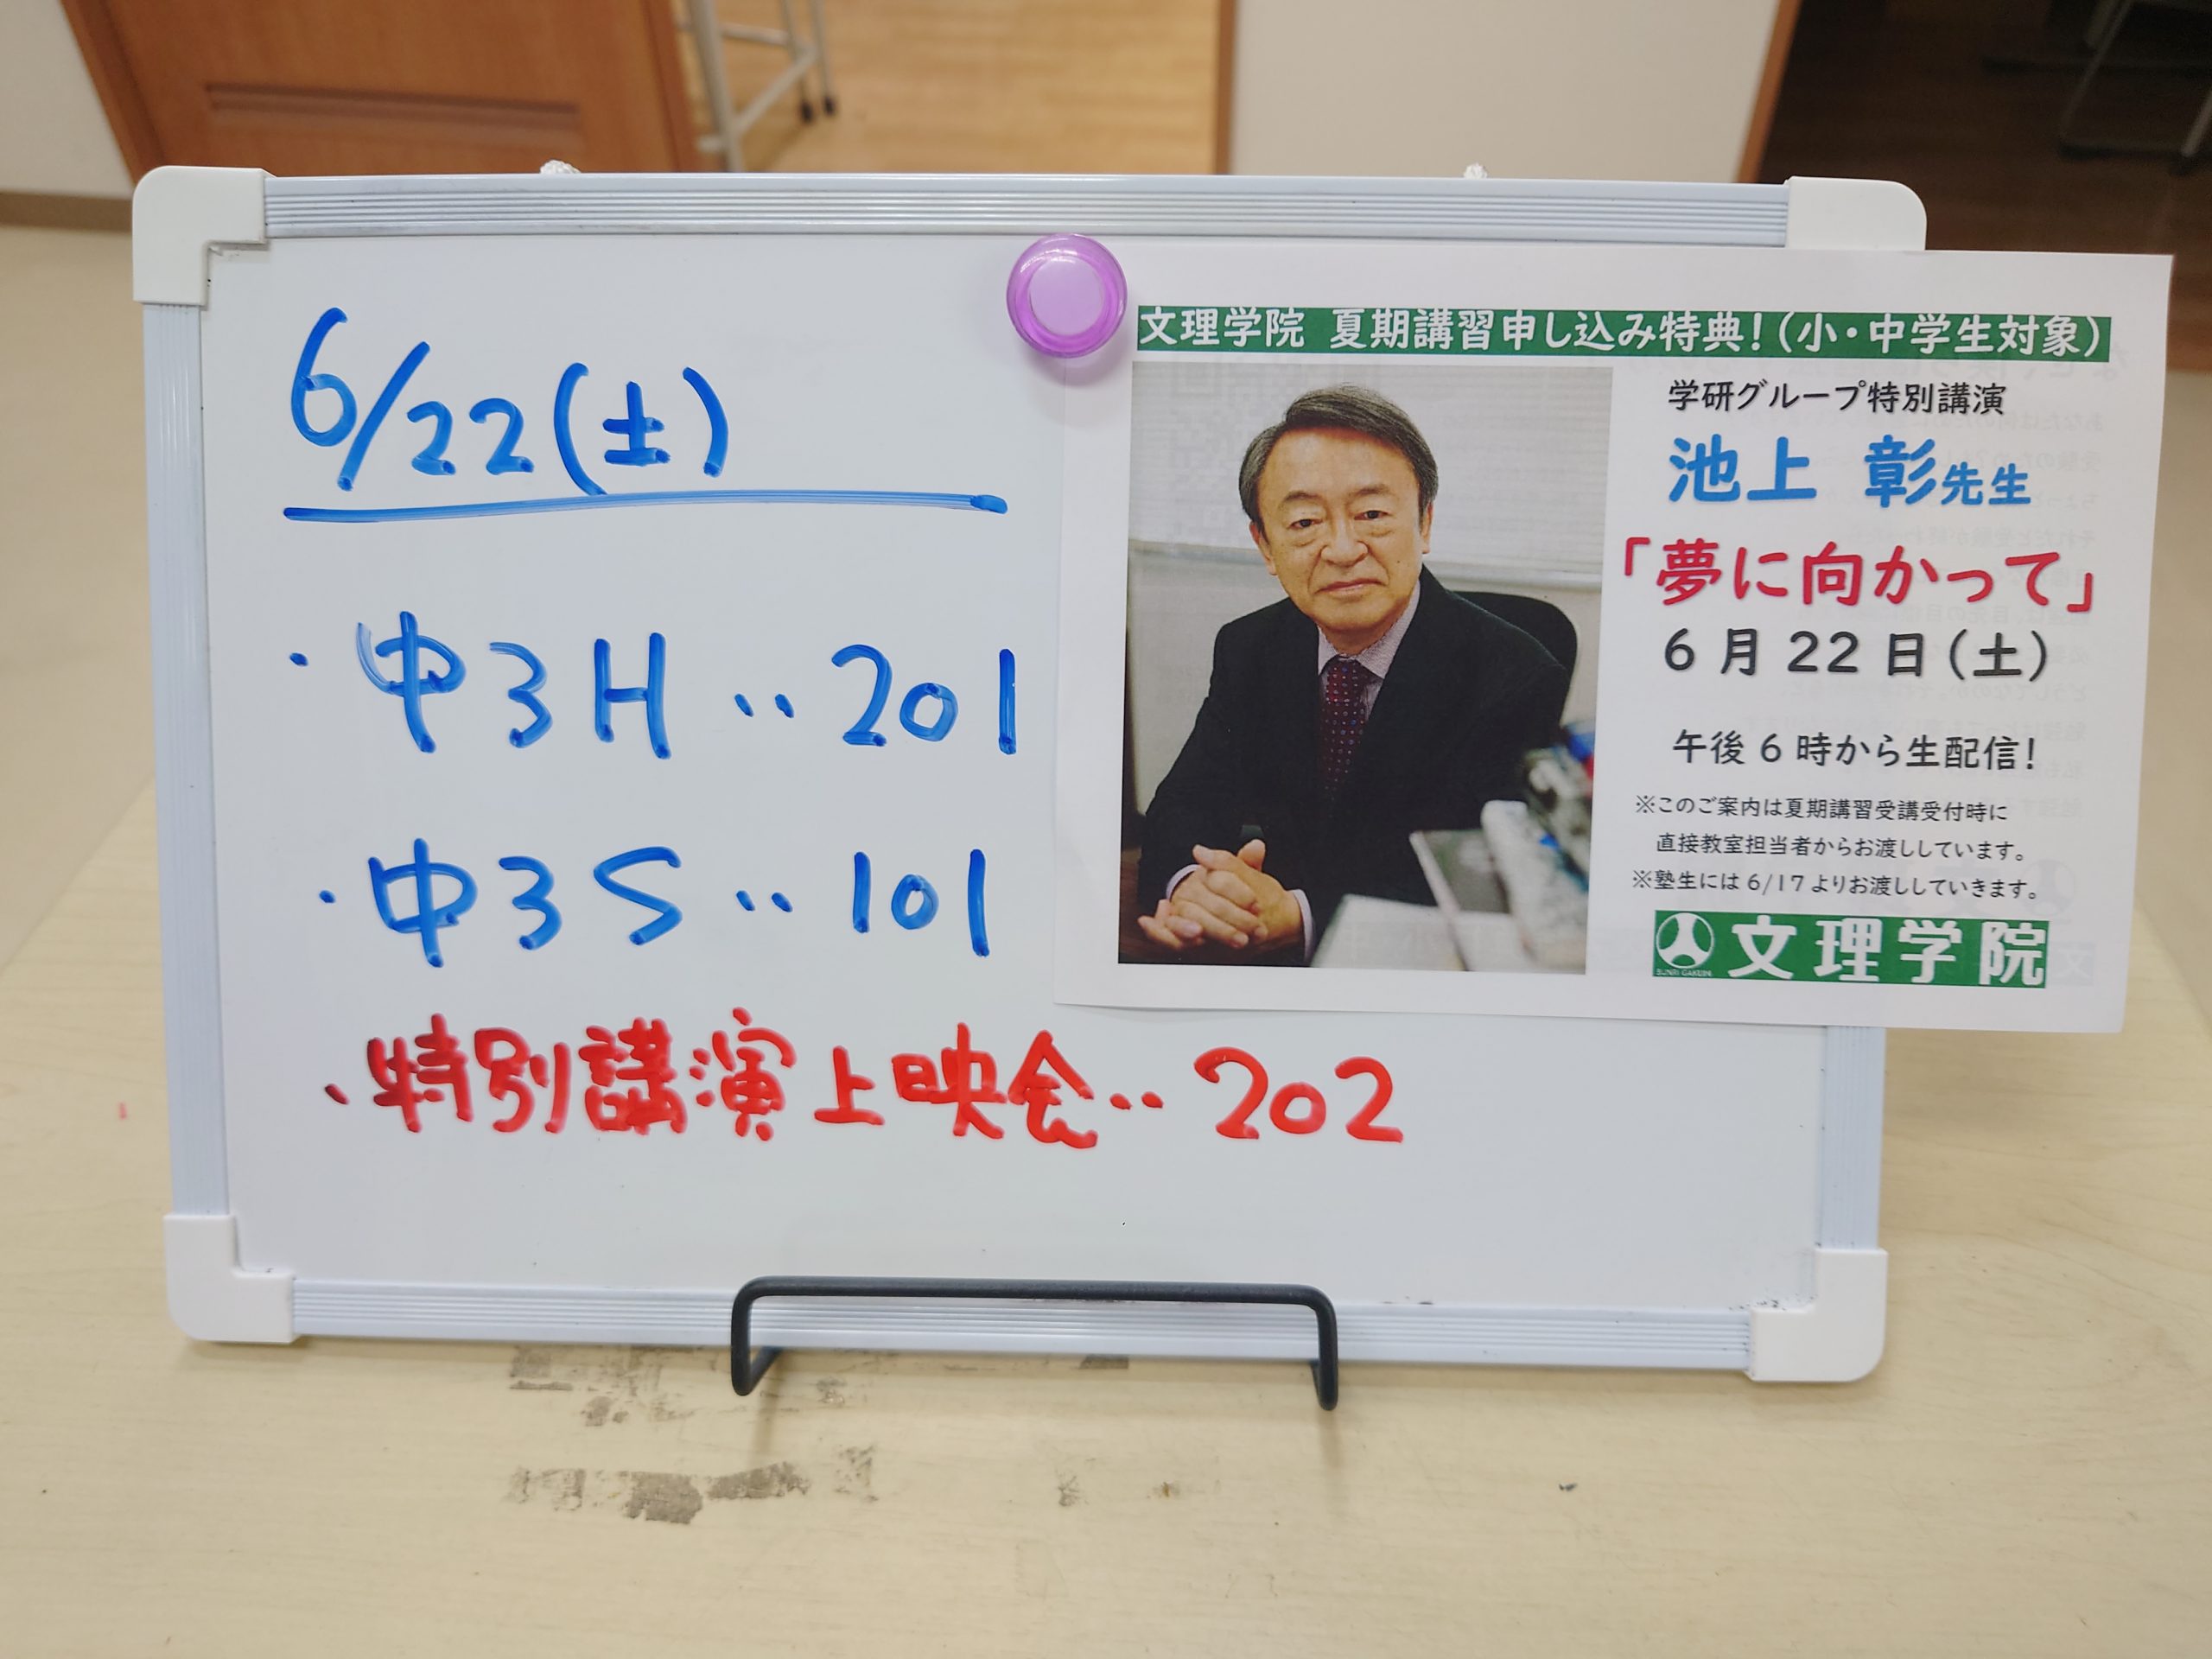 6/22(土)
・中3H‥201
・中3S‥101
・特別講演上映会‥202
文理学院 夏期講習申し込み特典!(小・中学生対象)
学研グループ特別講演
池上 彰先生
「夢に向かって」
6月22日(土)
午後6時から生配信!
※このご案内は夏期講習受講受付時に
直接教室担当者からお渡ししています。
※塾生には6/17よりお渡ししていきます。
BUNRI GAKUIN
文理学院